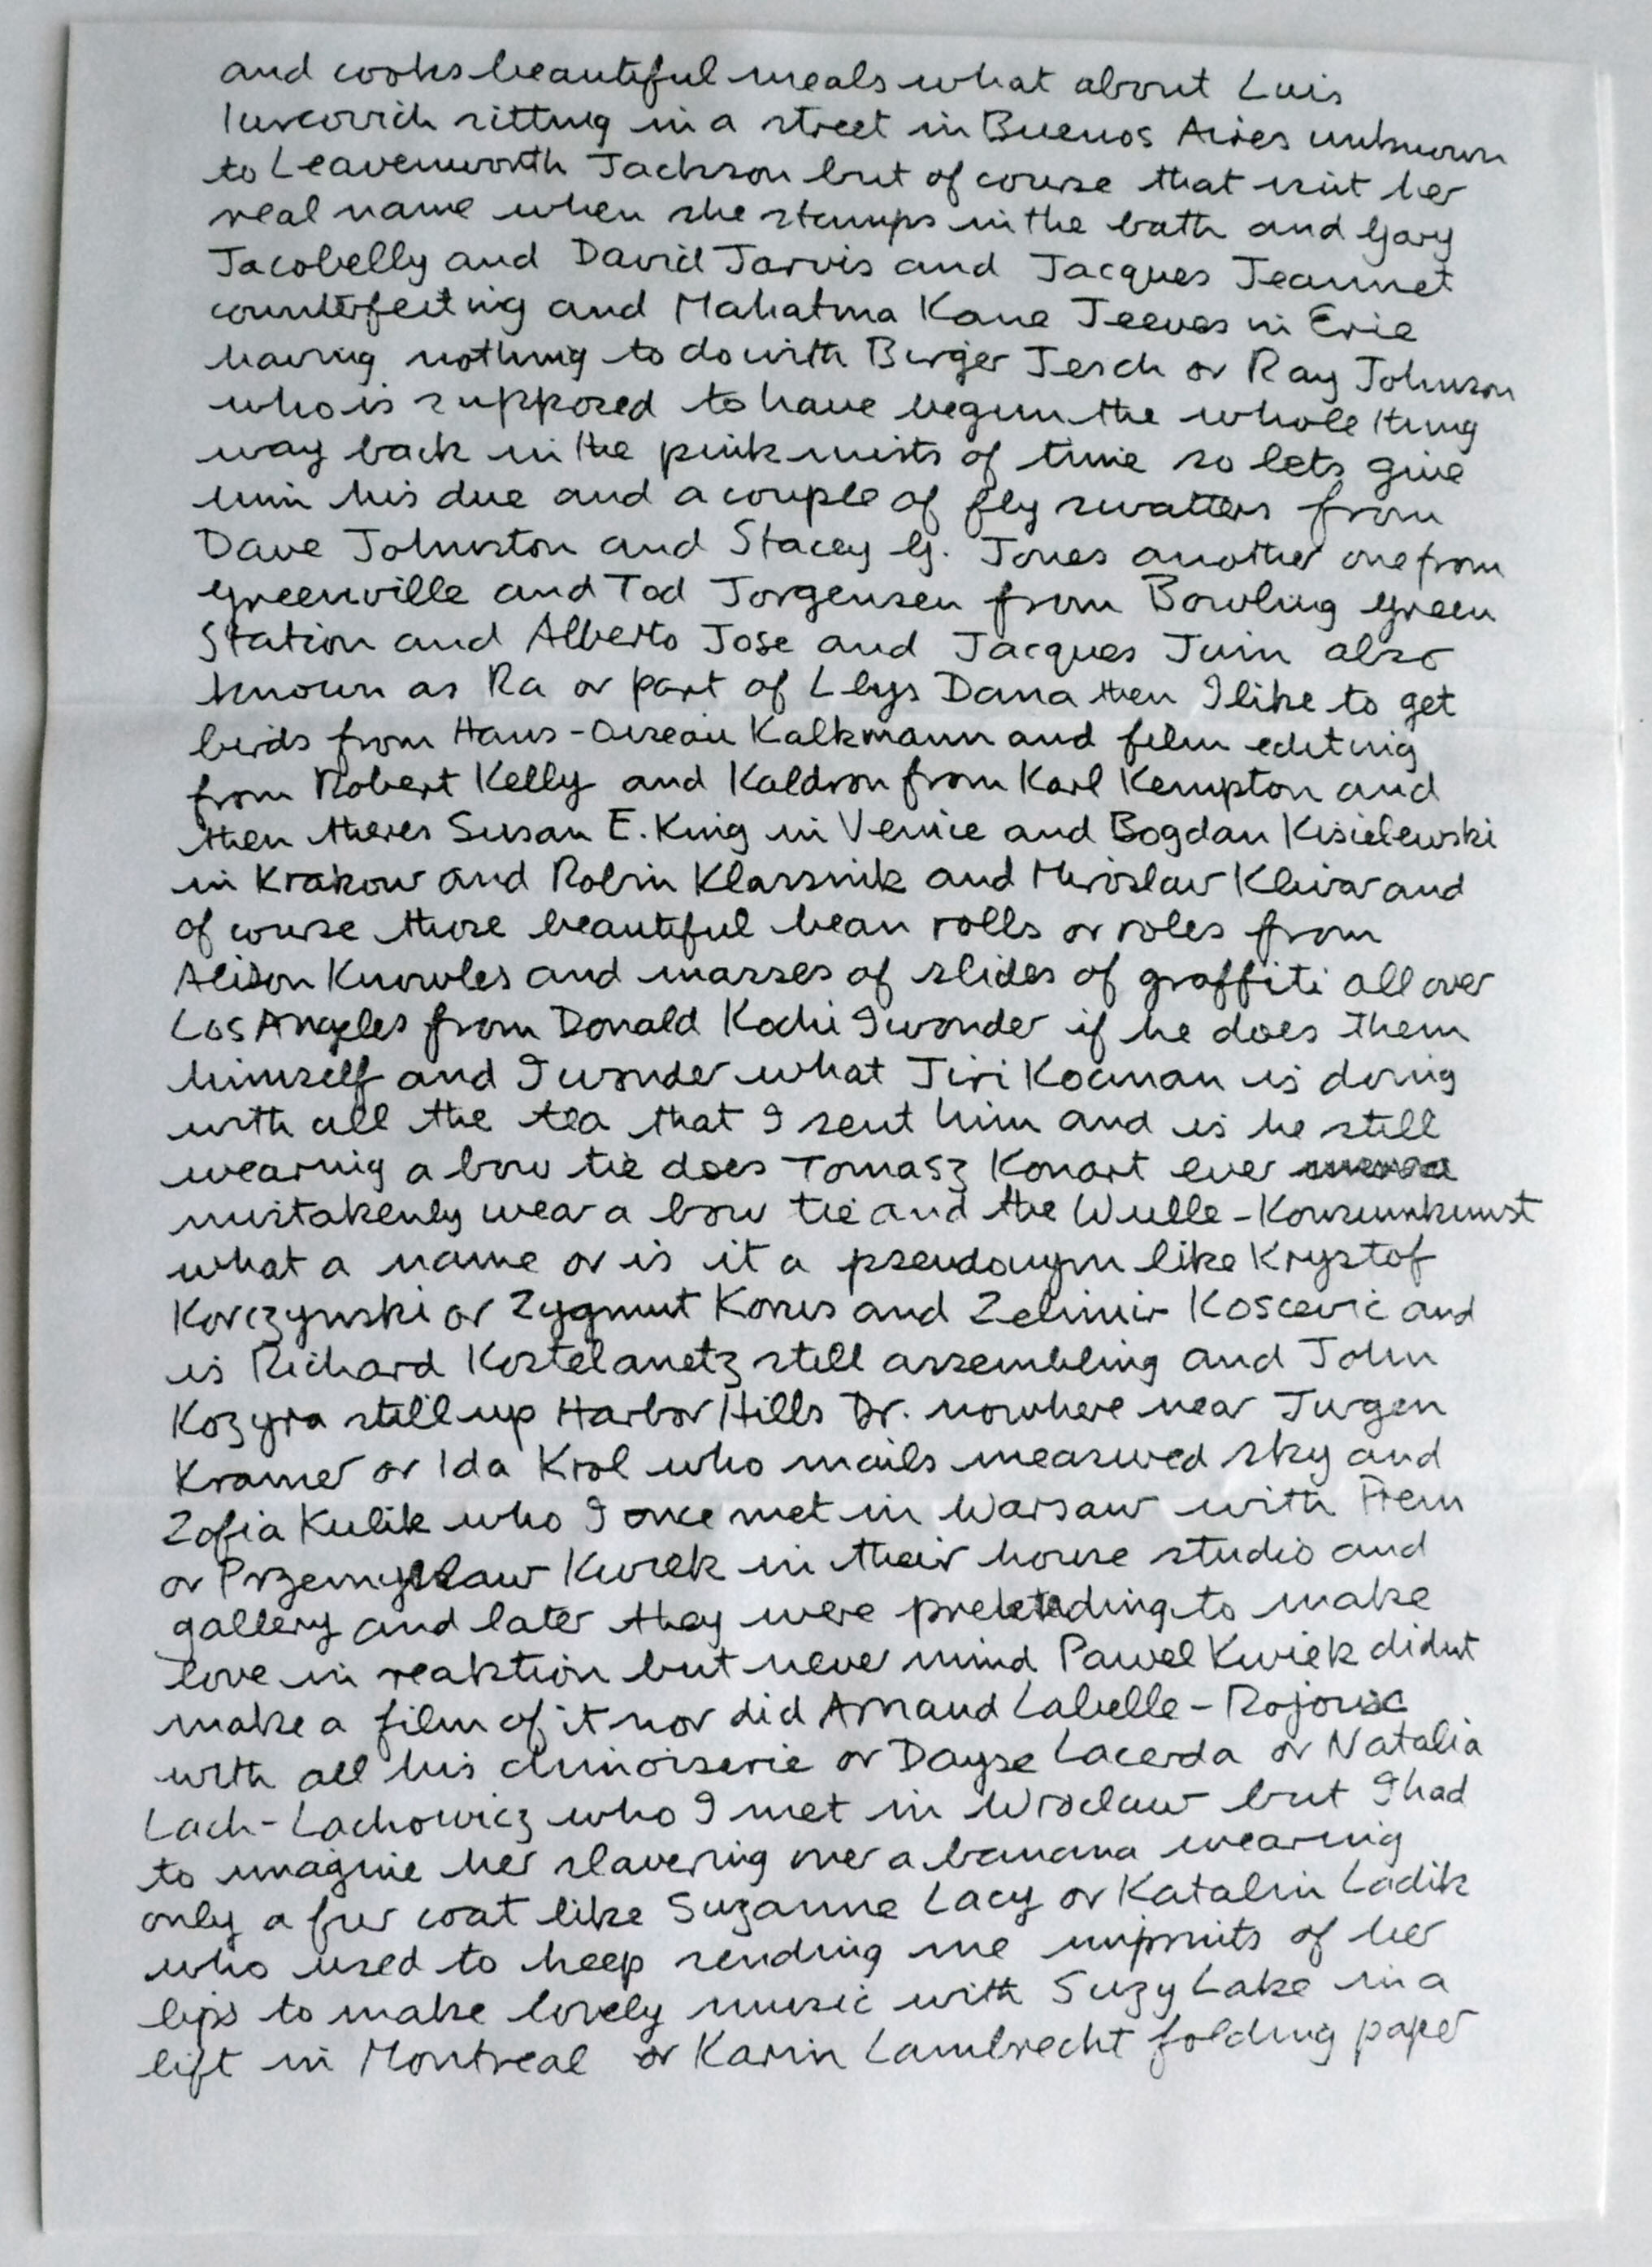 and cooks beautiful meals what about Luis
Iurcovich sitting in a street in Buenos Aires unknown
to Leavenworth Jackson but of course that isnt her
real name when she stamps in the bath and Gary
Jacobelly and David Jarvis and Jacques Jeannet
counterfeiting and Mahatma Kane Jeeves in Erie
having nothing to do with Birger Jesch or Ray Johnson
who is supposed to have begun the whole thing
way back in the pink mists of time so lets give
him his due and a couple of fly swatters from
Dave Johnston and Stacey G. Jones another one from
Greenville and Tod Jorgensen from Bowling Green
Station and Alberto Jose and Jacques Juin also
known as Ra or part of Llys Dana then I like to get
birds from Hans-Oiseau Kalkmann and film editing
from Robert Kelly and Kaldron from Karl Kempton and
then theres Susan E. King in Venice and Bogdan Kisielewski
in Krakow and Robin Klassnik and Miroslav Klivar and
of course those beautiful bean rolls or roles from
Alison Knowles and masses of slides of graffiti all over
Los Angeles from Donald Kochi I wonder if he does them
himself and I wonder what Jiri Kocman is doing
with all the tea that I sent him and is he still
wearing a bow tie does Tomasz Konart ever
mistakenly wear a bow tie and the Wulle-Konsumkunst
what a name or is it a pseudonym like Krystof
Korczynski or Zygmunt Korus and Zelimir Koscevic and
is Richard Kostelanetz still assembling and John
Kozyra still up Harbor Hills Dr. nowhere near Jurgen
Kramer or Ida Krol who mails measured sky and
Zofia Kulik who I once met in Warsaw with Prem
or Przemyslaw Kwiek in their house studio and
gallery and later they were pretending to make
love in reaktion but never mind Pawel Kwiek didnt
make a film of it nor did Arnaud Labelle-Rojoux
with all his chinoiserie or Dayse Lacerda or Natalia
Lach-Lachowicz who I met in Wroclaw but I had
to imagine her slavering over a banana wearing
only a fur coat like Suzanne Lacy or Katalin Ladik
who used to keep sending me imprints of her
lips to make lovely music with Suzy Lake in a
lift in Montreal or Karin Lambrecht folding paper